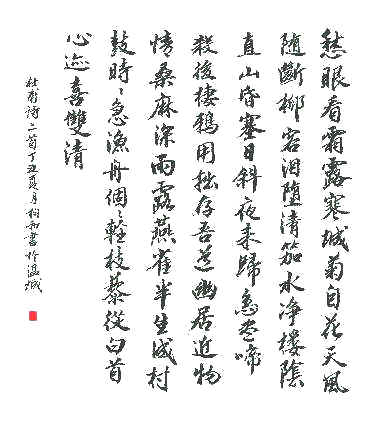 愁眼看霜露寒城菊自花天風
隨斷柳客泪堕清笳水净樓陰
直山昏塞日斜夜来歸鳥盡啼
殺後棲鴉用拙存吾道幽居近物
情桑麻深雨露燕雀半生成村
鼓時〻急漁舟個〻輕杖藜從白首
心迹喜雙清
杜甫詩二首丁丑夏月柏和書於温城